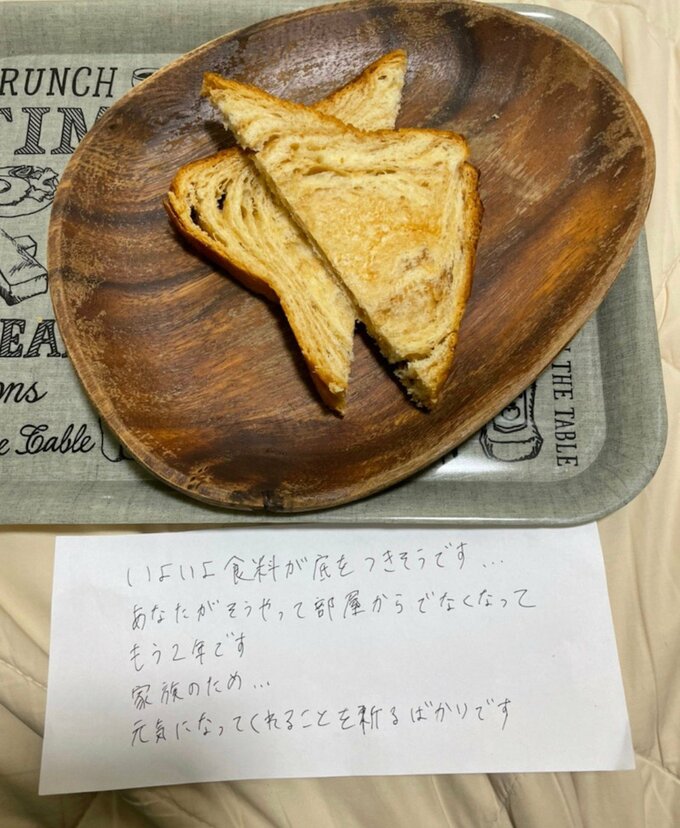 RUNCH
TIM
EA
ons
e Table
THE TABLE
いよいよ食料が底をつきそうです...
あなたがそうやって部屋からでなくなって
もう2年です
家族のため...
元気になってくれることを祈るばかりです